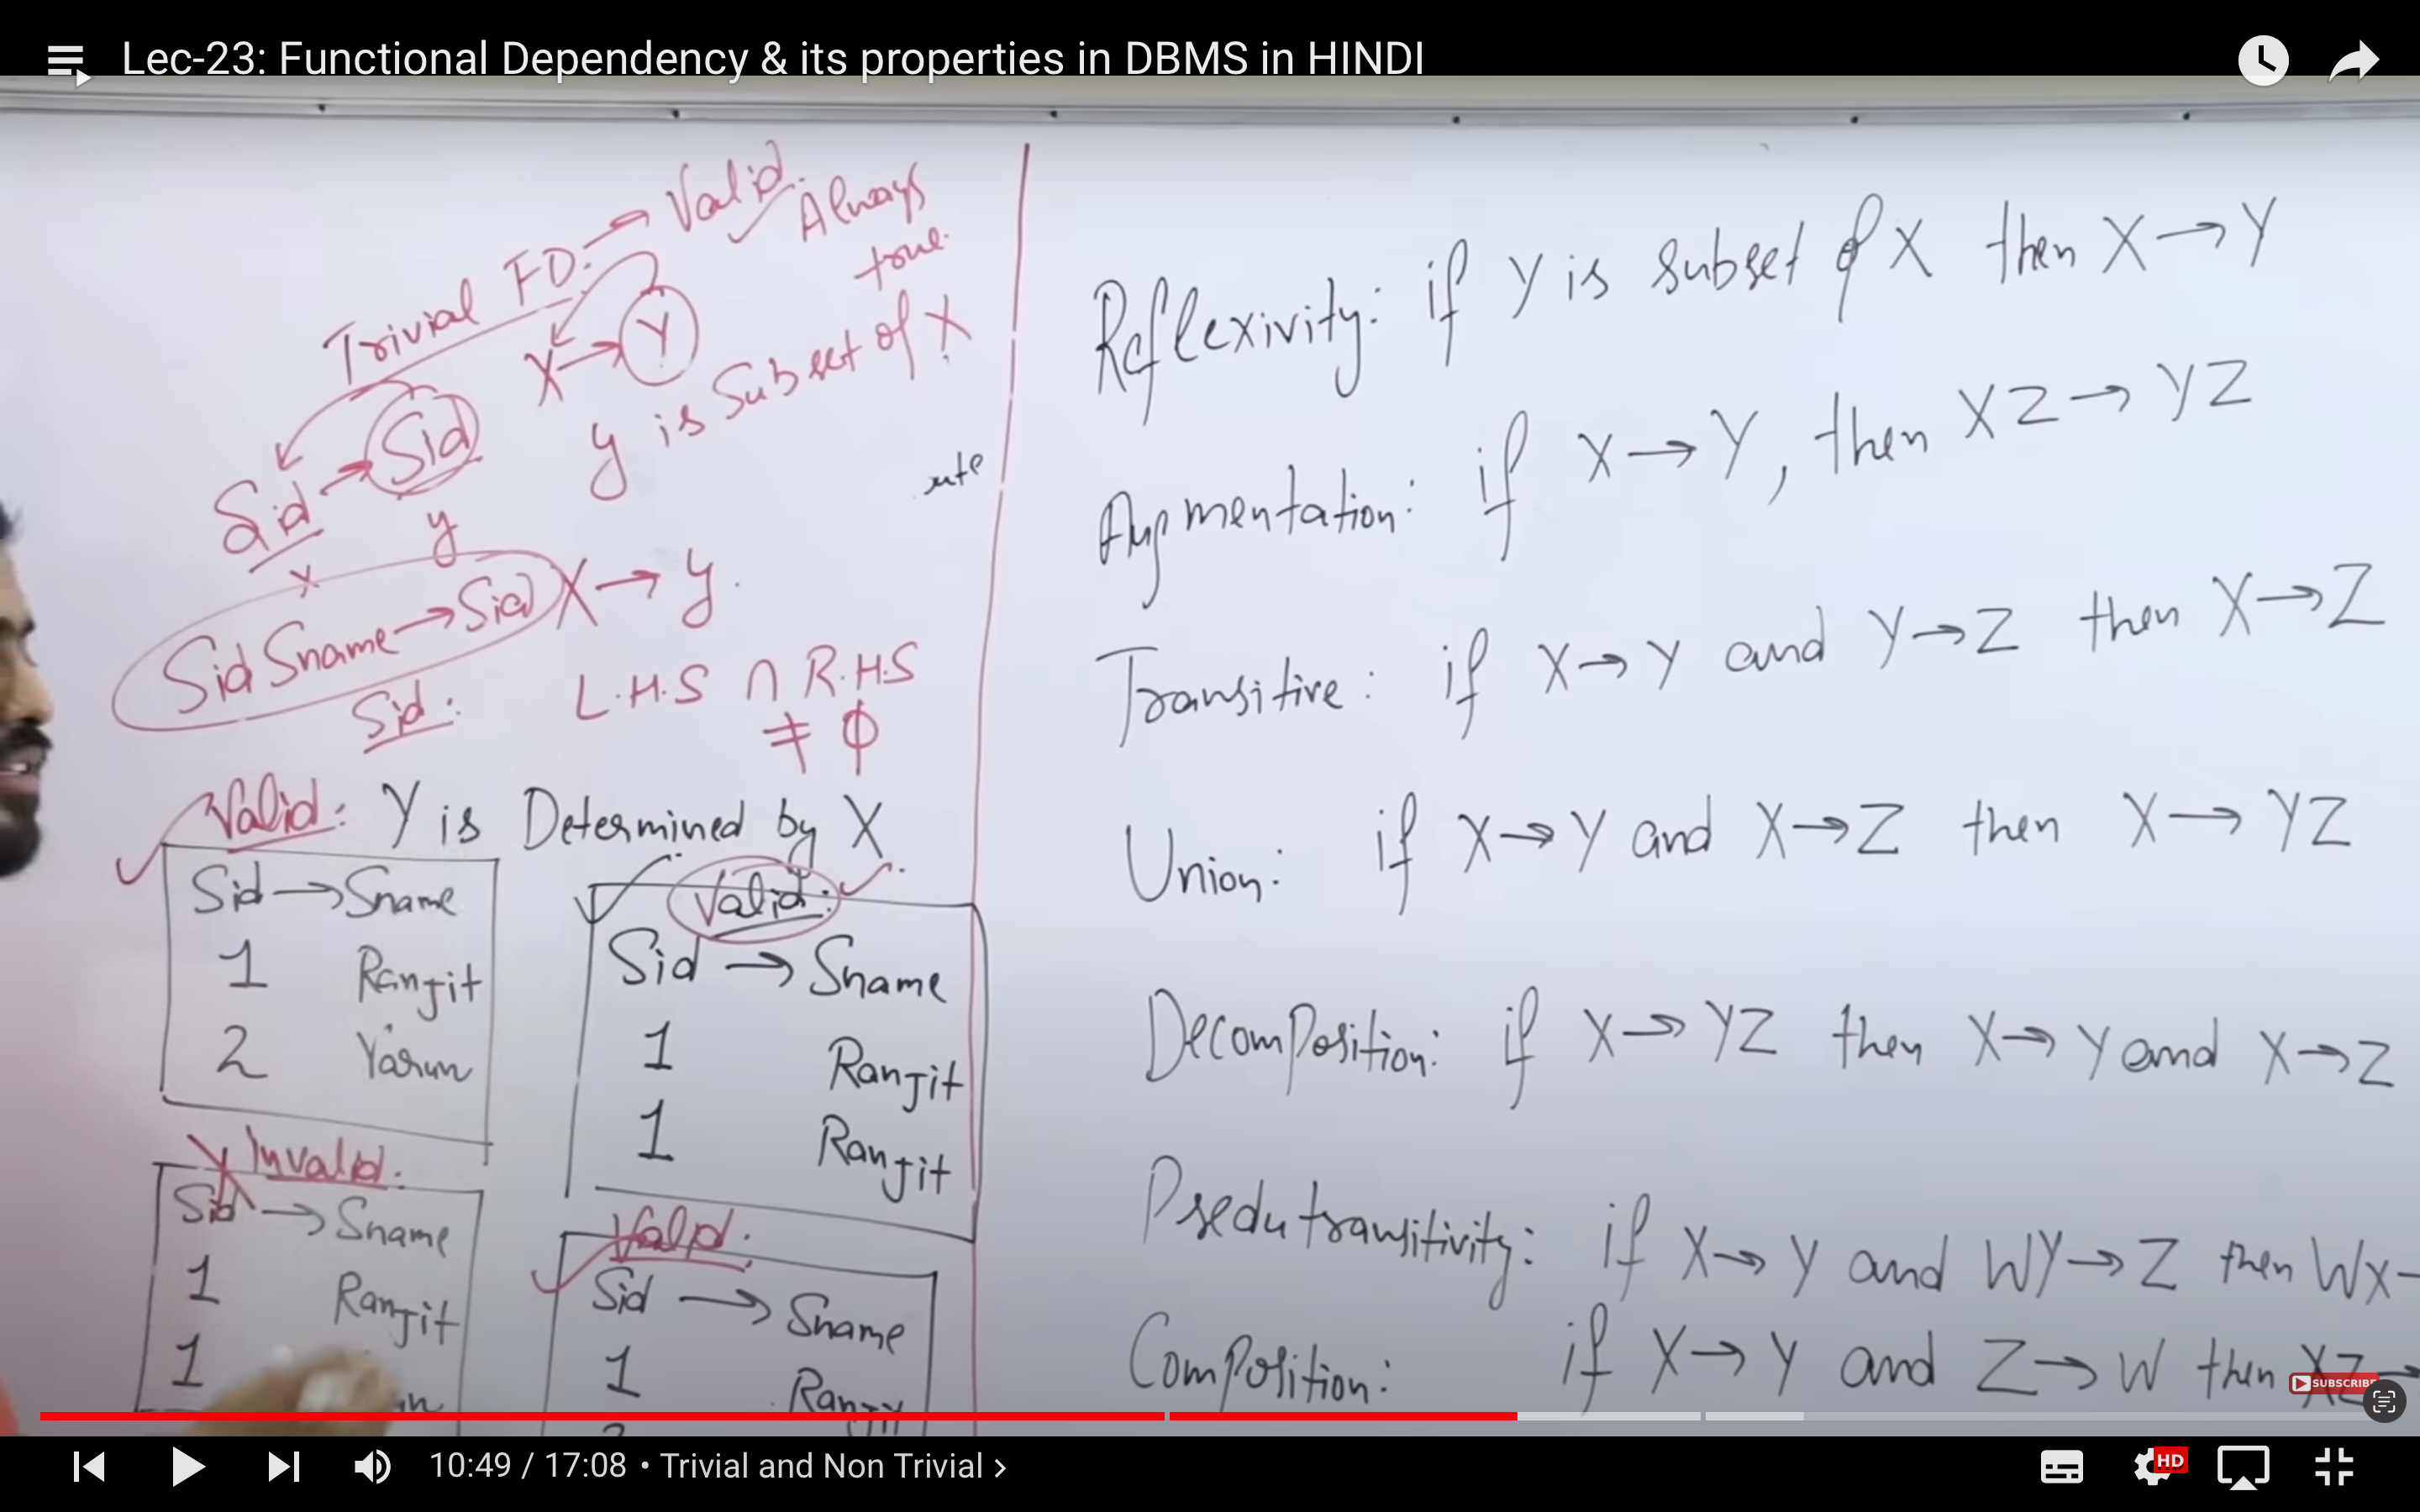 Lec-23: Functional Dependency & its properties in DBMS in HINDI
Trivial FD: → Valid. Always
true.
X → Y
y is Subset of X
Sid → Sid
x y
Sid Sname → Sid
Sid:
X → y.
L.H.S ∩ R.H.S
≠ ϕ
Valid: Y is Determined by X
Sid → Sname
1 Ranjit
2 Varun
Valid:
Sid → Sname
1 Ranjit
1 Ranjit
Invalid:
Sid → Sname
1 Ranjit
1
Valid:
Sid → Sname
1
Reflexivity: if Y is subset of X then X → Y
Augmentation: if X → Y, then XZ → YZ
Transitive: if X → Y and Y → Z then X → Z
Union: if X → Y and X → Z then X → YZ
Decomposition: if X → YZ then X → Y and X → Z
Psedutransitivity: if X → Y and WY → Z then Wx
Composition: if X → Y and Z → W then XZ →
SUBSCRIBE
10:49 / 17:08 • Trivial and Non Trivial >
HD